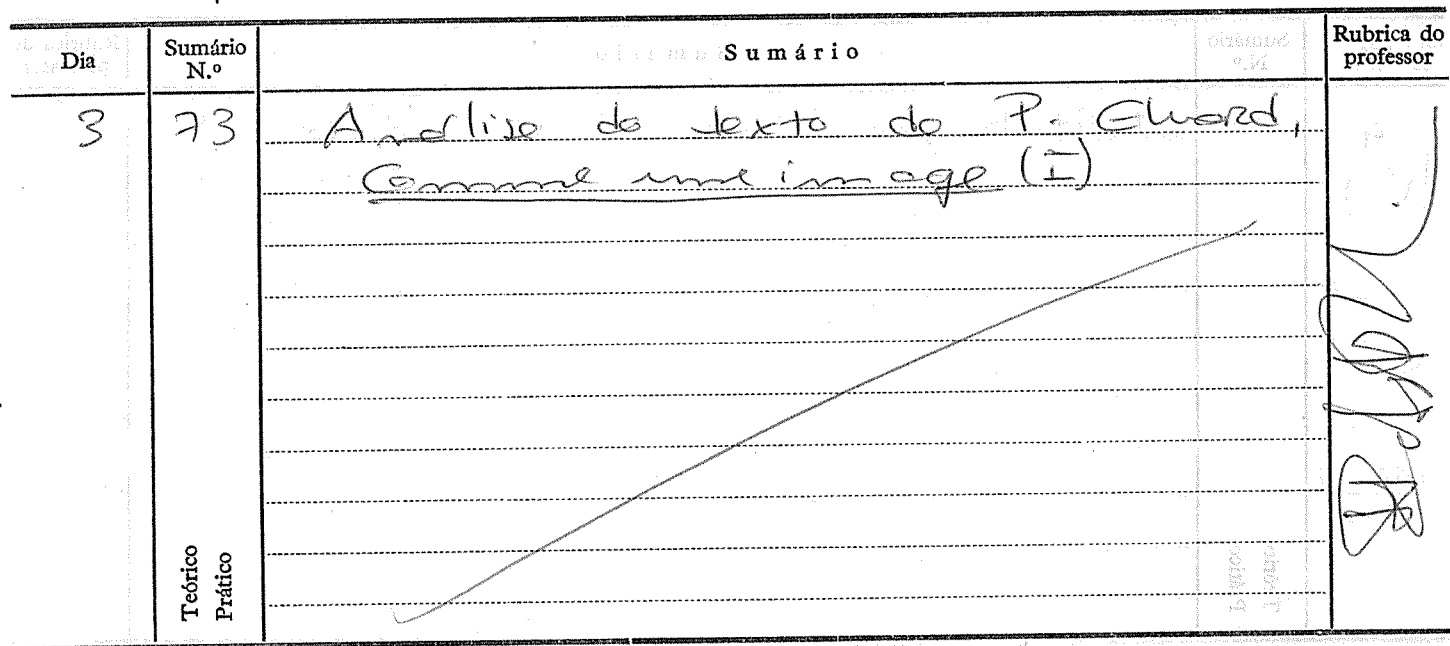 Dia
Sumário N.º
Sumário
Rubrica do professor
3
73
Análise do texto do P. Eluard,
Comme une image (I)
Teórico
Prático